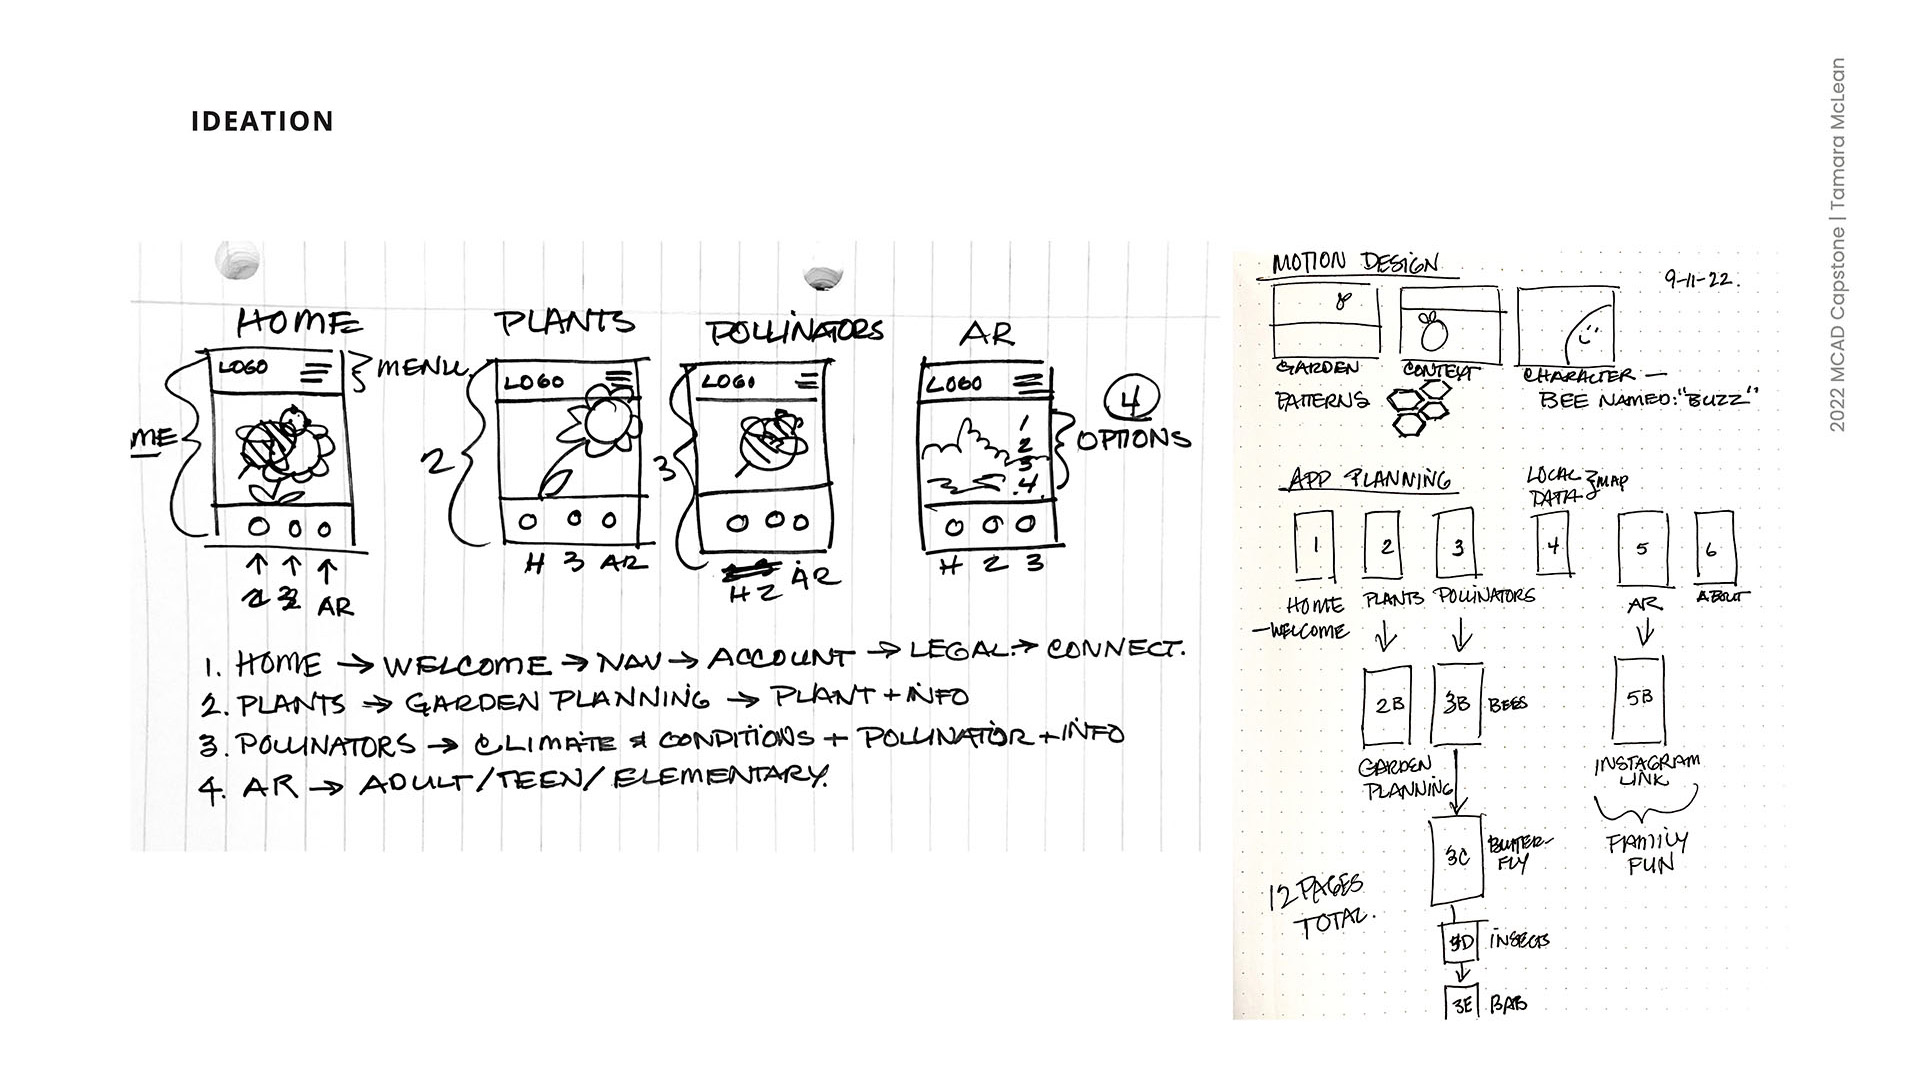 IDEATION
2022 MCAD Capstone | Tamara McLean
HOME
LOGO
MENU
ME
AR
PLANTS
LOGO
2
H 3 AR
POLLINATORS
LOGO
3
H 2 AR
AR
LOGO
1
2
3
4
4
OPTIONS
H 2 3
1. HOME → WELCOME → NAV → ACCOUNT → LEGAL → CONNECT.
2. PLANTS → GARDEN PLANNING → PLANT + INFO
3. POLLINATORS → CLIMATE & CONDITIONS + POLLINATOR + INFO
4. AR → ADULT/TEEN/ELEMENTARY.
MOTION DESIGN
9-11-22.
GARDEN
CONTEXT
CHARACTER —
BEE NAMED: "BUZZ"
PATTERNS
APP PLANNING
LOCAL
DATA
MAP
1
2
3
4
5
6
HOME
—WELCOME
PLANTS
POLLINATORS
AR
ABOUT
2B
3B
BEES
5B
GARDEN
PLANNING
INSTAGRAM
LINK
3C
BUTTER-
FLY
FAMILY
FUN
12 PAGES
TOTAL.
INSECTS
3E